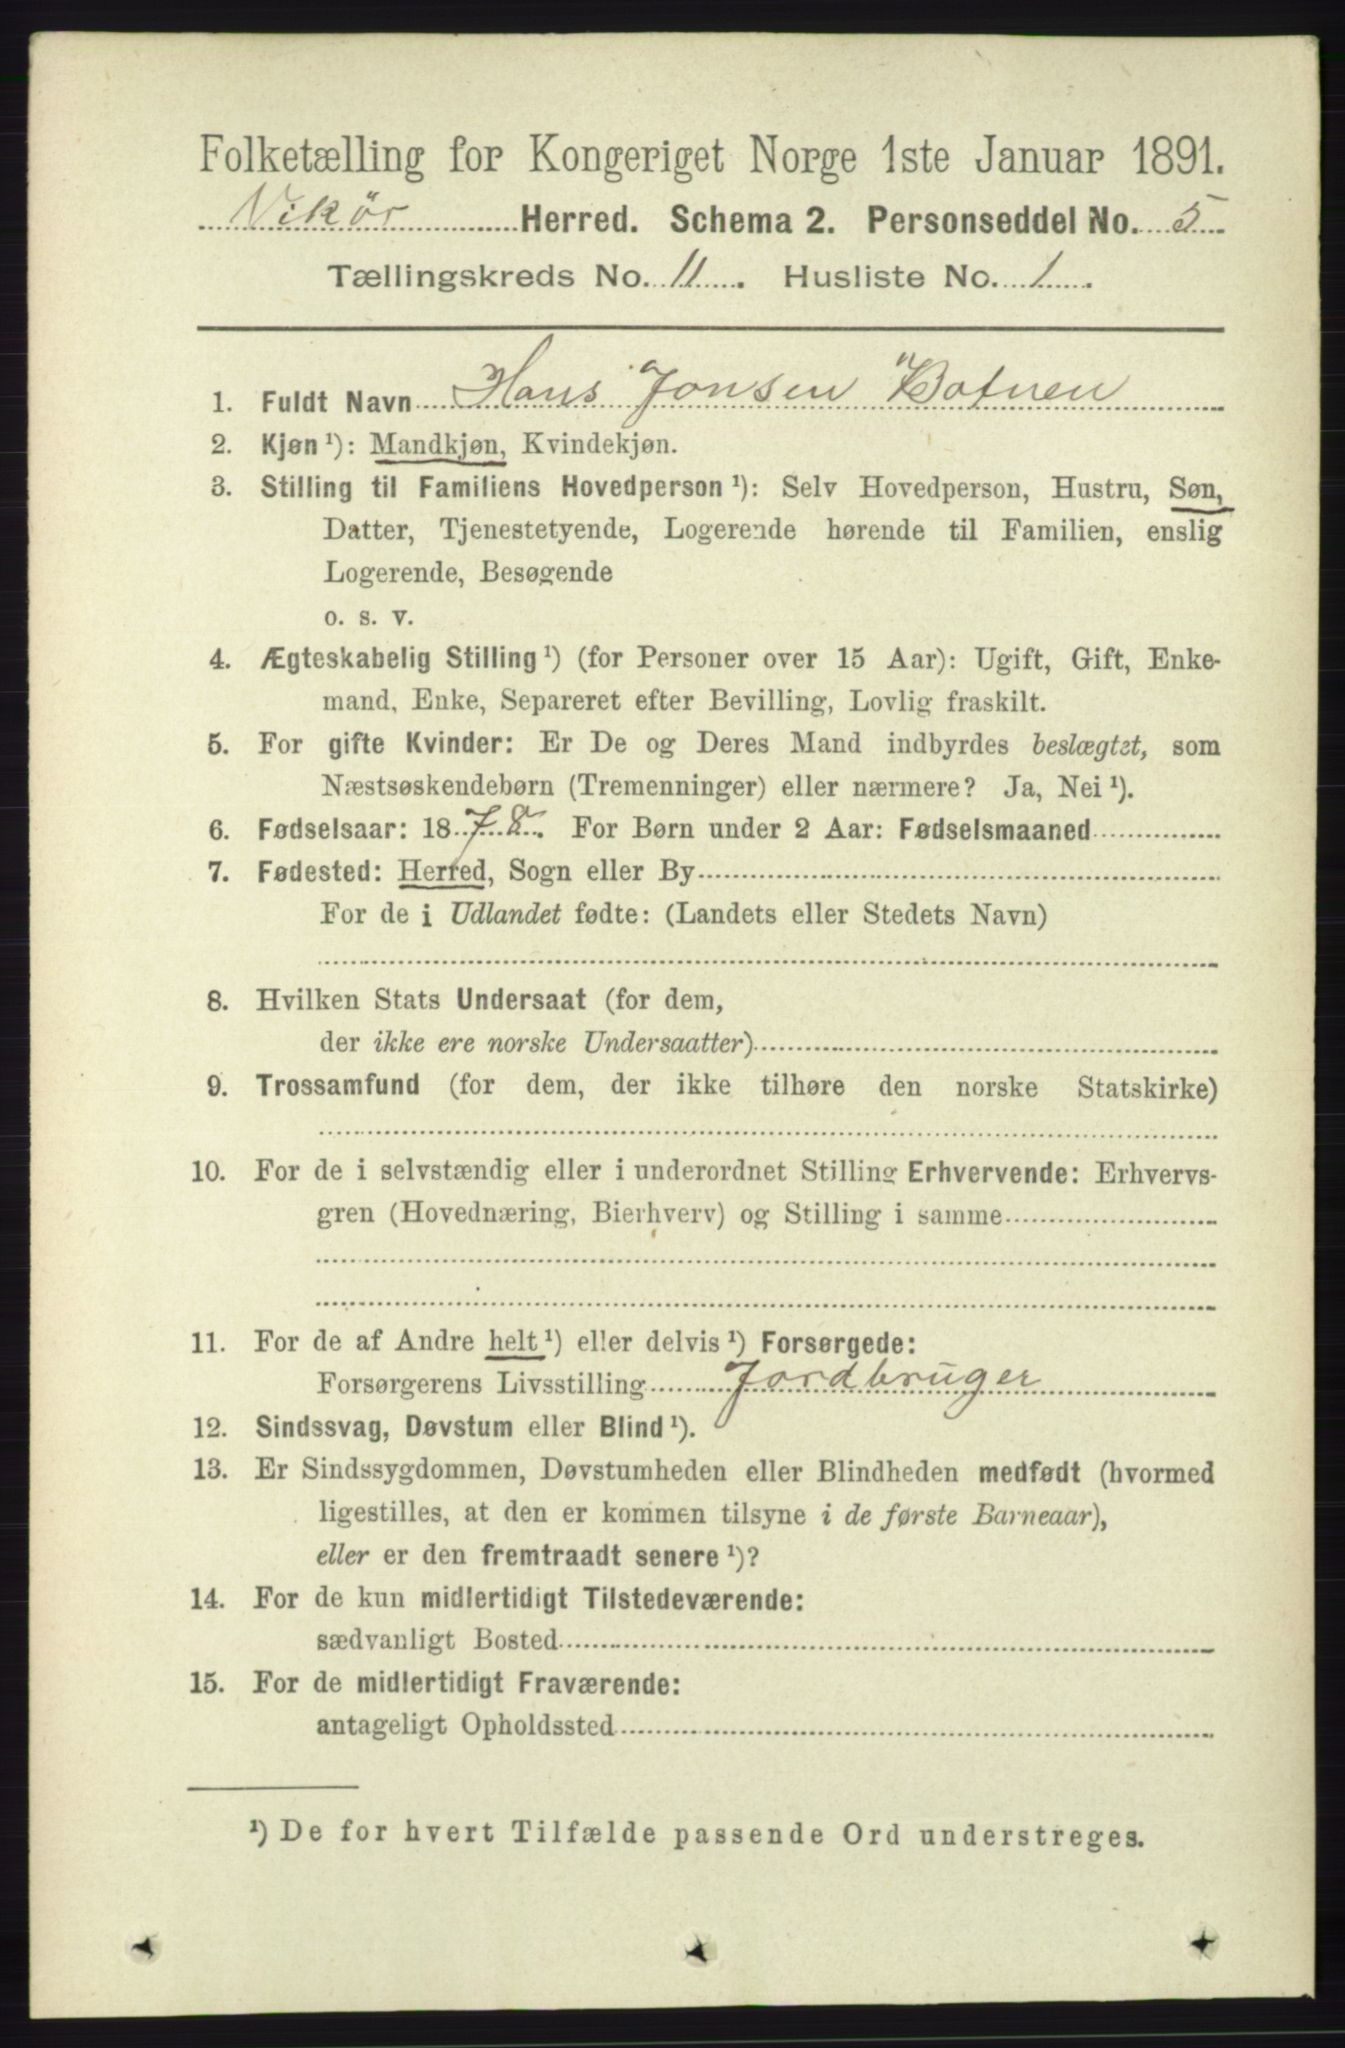 Folketælling for Kongeriget Norge 1ste Januar 1891.
Vikør Herred. Schema 2. Personseddel No. 5
Tællingskreds No. 11. Husliste No. 1.
1. Fuldt Navn Hans Jonsen Botnen
2. Kjøn ¹): Mandkjøn, Kvindekjøn.
3. Stilling til Familiens Hovedperson ¹): Selv Hovedperson, Hustru, Søn,
Datter, Tjenestetyende, Logerende hørende til Familien, enslig
Logerende, Besøgende
o. s. v.
4. Ægteskabelig Stilling ¹) (for Personer over 15 Aar): Ugift, Gift, Enke-
mand, Enke, Separeret efter Bevilling, Lovlig fraskilt.
5. For gifte Kvinder: Er De og Deres Mand indbyrdes beslægtet, som
Næstsøskendebørn (Tremenninger) eller nærmere? Ja, Nei ¹).
6. Fødselsaar: 1878. For Børn under 2 Aar: Fødselsmaaned
7. Fødested: Herred, Sogn eller By
For de i Udlandet fødte: (Landets eller Stedets Navn)
8. Hvilken Stats Undersaat (for dem,
der ikke ere norske Undersaatter)
9. Trossamfund (for dem, der ikke tilhøre den norske Statskirke)
10. For de i selvstændig eller i underordnet Stilling Erhvervende: Erhvervs-
gren (Hovednæring, Bierhverv) og Stilling i samme
11. For de af Andre helt ¹) eller delvis ¹) Forsørgede:
Forsørgerens Livsstilling Jordbruger
12. Sindssvag, Døvstum eller Blind ¹).
13. Er Sindssygdommen, Døvstumheden eller Blindheden medfødt (hvormed
ligestilles, at den er kommen tilsyne i de første Barneaar),
eller er den fremtraadt senere ¹)?
14. For de kun midlertidigt Tilstedeværende:
sædvanligt Bosted
15. For de midlertidigt Fraværende:
antageligt Opholdssted
¹) De for hvert Tilfælde passende Ord understreges.